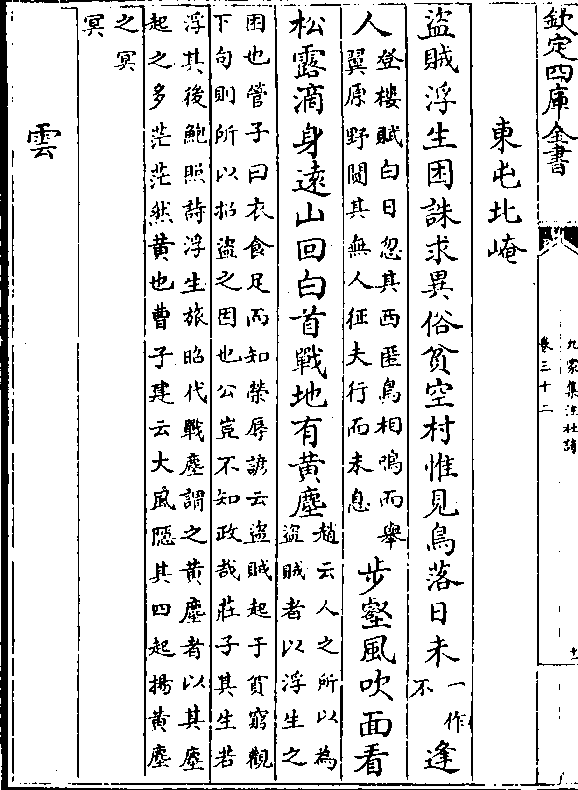 欽定四庫全書
九家集注杜詩
卷三十二
東屯北崦
盜賊浮生困誅求異俗貧空村惟見鳥落日未
一作
不
逢
人
登樓賦白日忽其西匿鳥相鳴而舉
翼原野闃其無人征夫行而未息
步壑風吹面看
松露滴身遠山回白首戰地有黃塵
趙云人之所以為
盜賊者以浮生之
困也管子曰衣食足而知榮辱諺云盜賊起于貧窮觀
下句則所以招盜之因也公豈不知政哉莊子其生若
浮其後鮑照詩浮生旅昭代戰塵謂之黃塵者以其塵
起之多茫茫然黃也曹子建云大風隱其四起揚黃塵
之冥
冥
雲